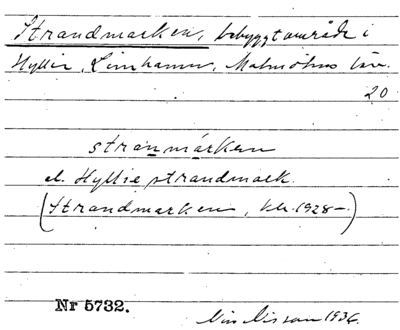 Strandmarken, bebyggt område i
Hyllie, Limhamn, Malmöhus län.
20
stranmárken
el. Hyllie strandmark.
(Strandmarken, kbr. 1928–)
Nr 5732.
Nils Nilsson 1936.